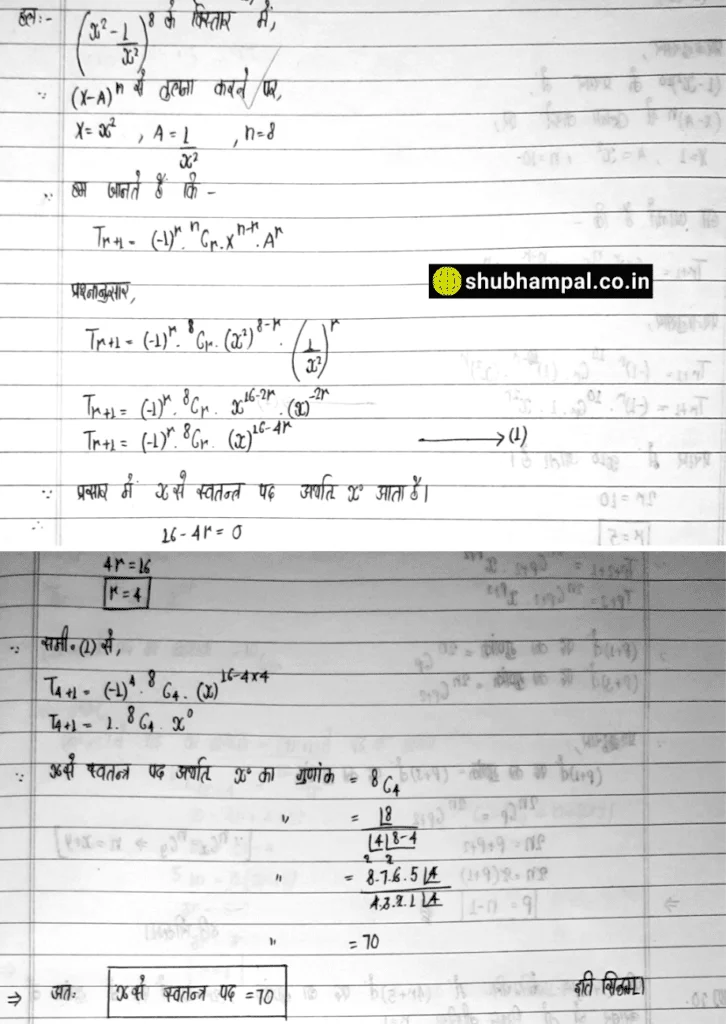 हल:- (x² - 1/x²)⁸ के विस्तार में,
∵ (X-A)ⁿ से तुलना करने पर,
X = x² , A = 1/x² , n=8
∵ हम जानते हैं कि -
Tr+1 = (-1)ʳ. ⁿCr. Xⁿ⁻ʳ. Aʳ
shubhampal.co.in
प्रश्नानुसार,
Tr+1 = (-1)ʳ. ⁸Cr. (x²)⁸⁻ʳ. (1/x²)ʳ
Tr+1 = (-1)ʳ. ⁸Cr. x¹⁶⁻²ʳ. (x)⁻²ʳ
Tr+1 = (-1)ʳ. ⁸Cr. (x)¹⁶⁻⁴ʳ ⟶ (1)
∵ प्रसार में x से स्वतन्त्र पद अर्थात x⁰ आता है।
∴ 16-4r = 0
4r = 16
r = 4
∵ समी० (1) से,
T4+1 = (-1)⁴. ⁸C4. (x)^16-4×4
T4+1 = 1. ⁸C4. x⁰
∵ x से स्वतन्त्र पद अर्थात x⁰ का गुणांक = ⁸C4
" = |8 / |4 |8-4
" = 8.7.6.5 |4 / 4.3.2.1 |4
" = 70
⇒ अतः x से स्वतन्त्र पद = 70 इति सिद्धम्।